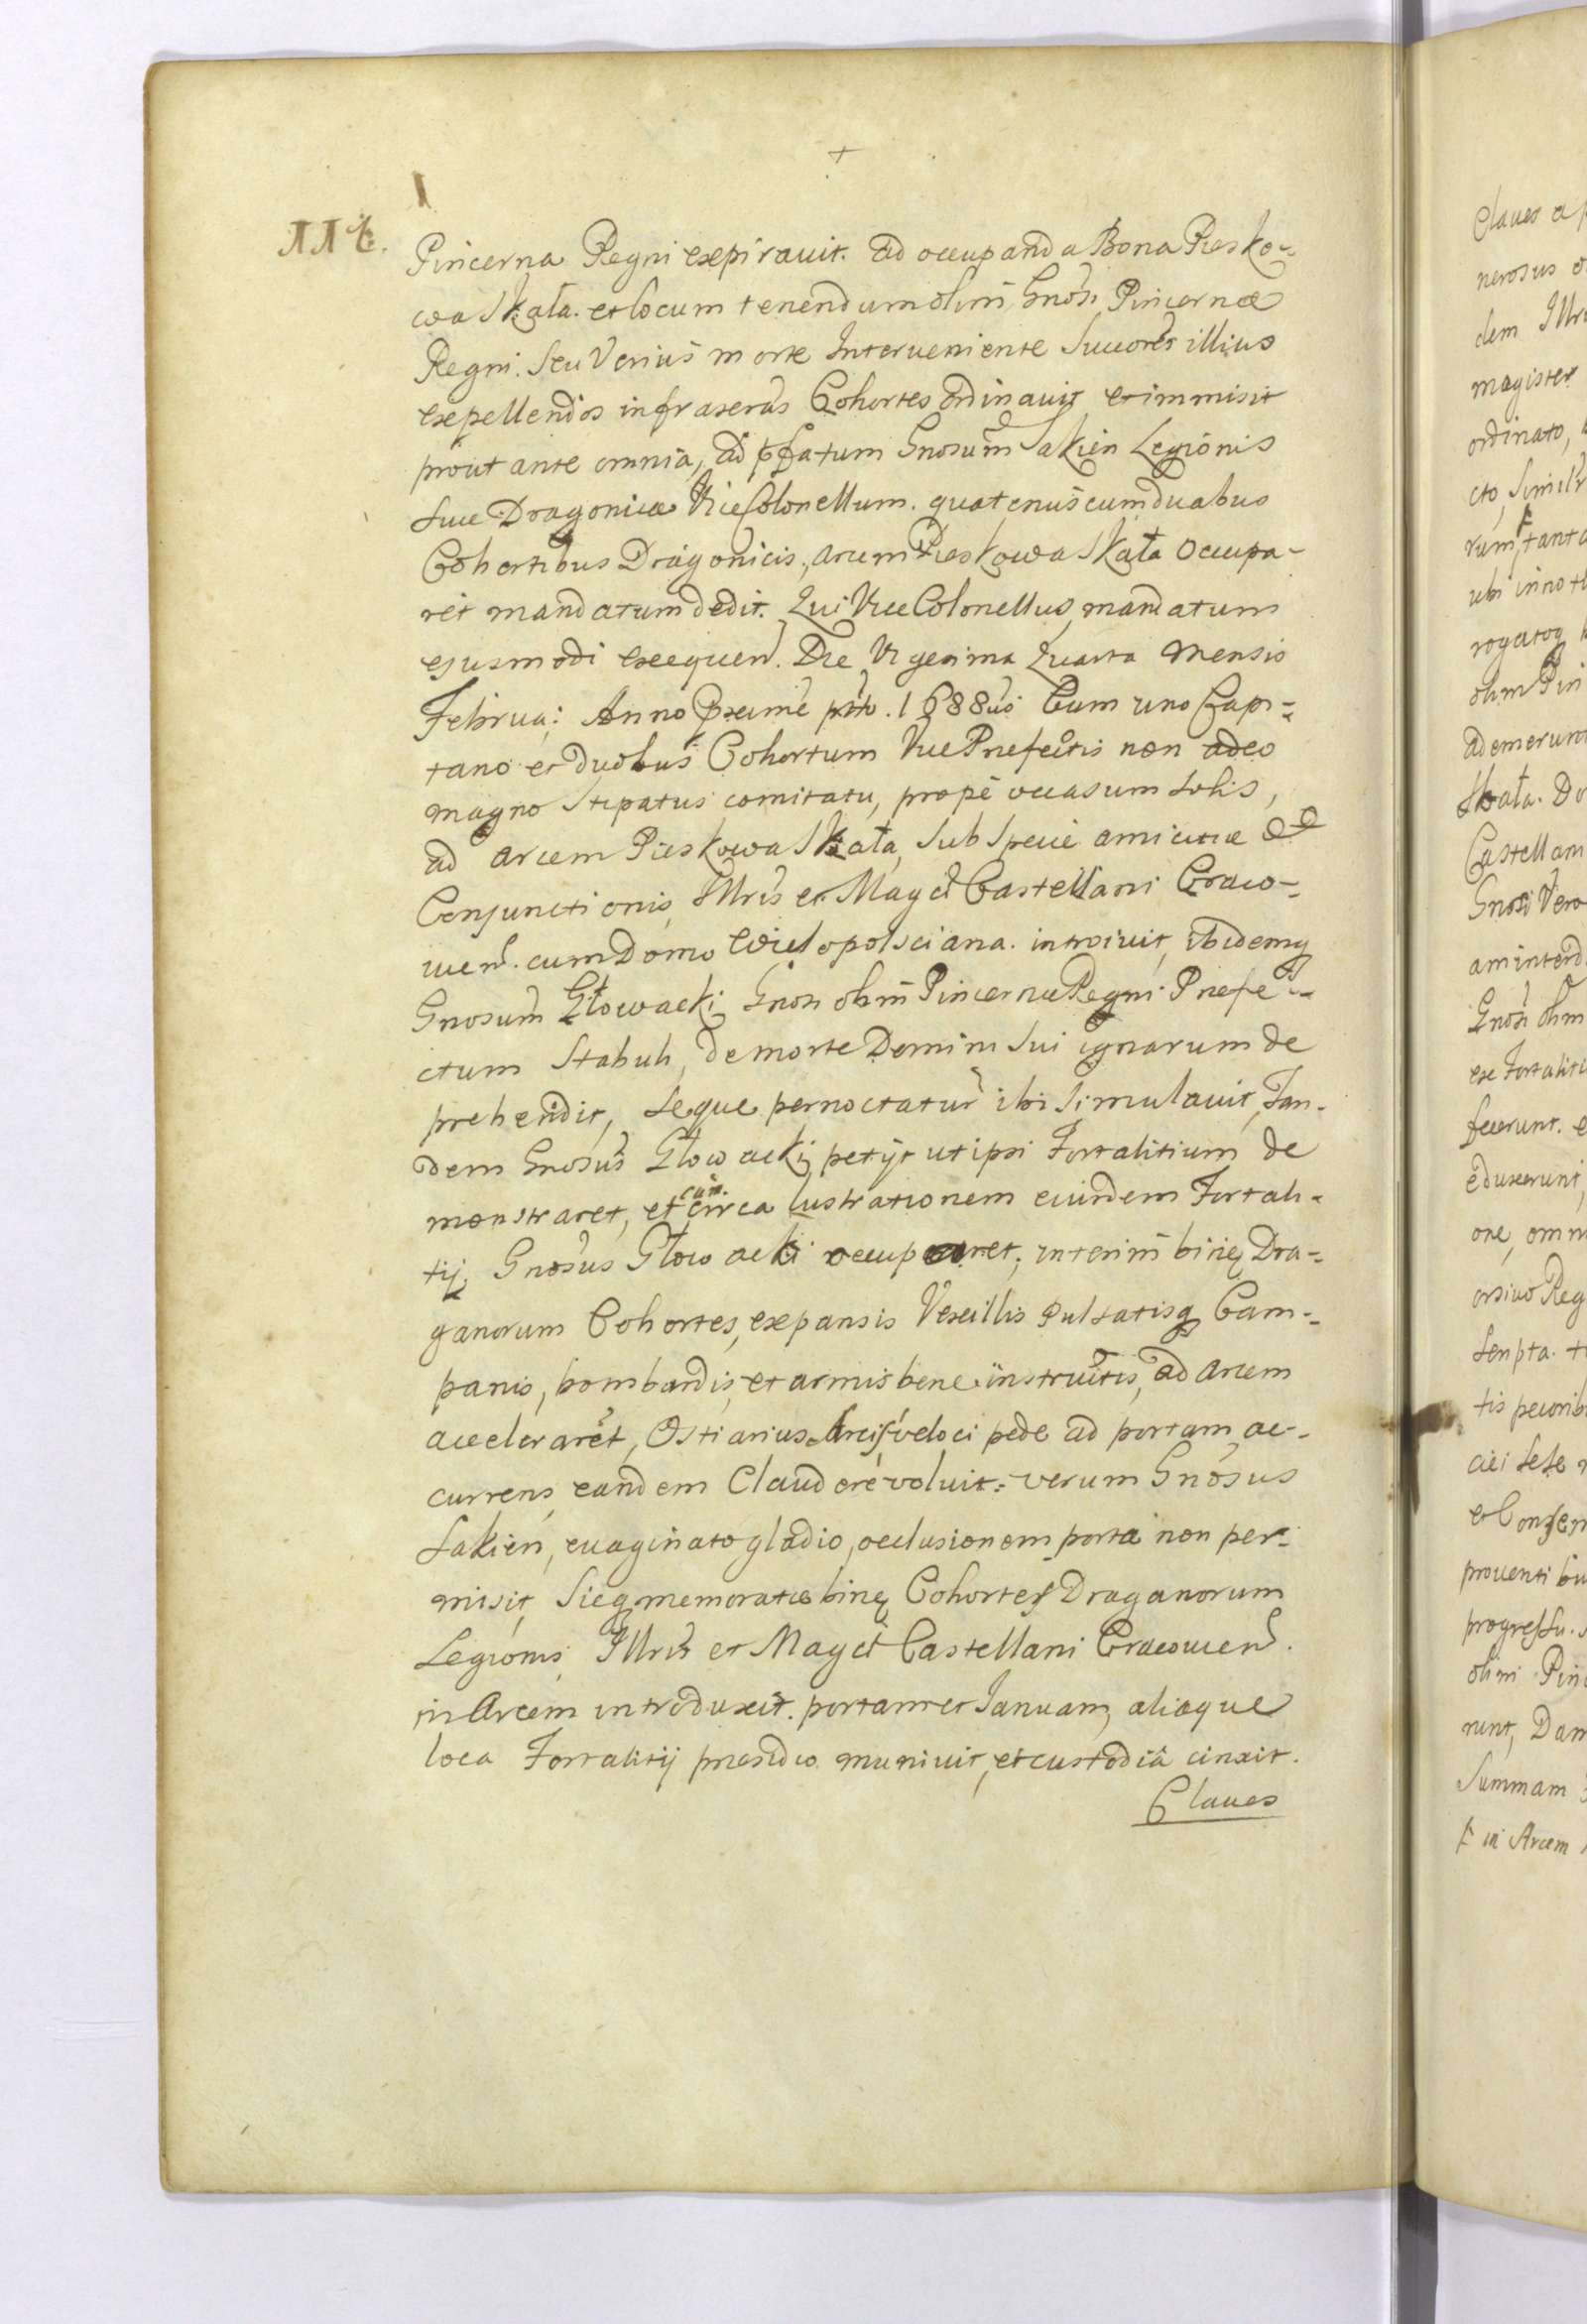 Pincerna Regni expirauit. ad occupanda Bona Piesko-
wa Skała. et locum tenendum olim Gnosi Pincernæ
Regni. Seu Verius morte Interueniente Succores illius
expellendos infraserus Cohortes ordinauit et immisit
prout ante omnia, ad pfatum Gnosum Sakien Legionis
suæ Dragonicæ ViceColonellum. quatenus cum duabus
Cohortibus Dragonicis, arcem Pieskowa Skała occupa-
ret mandatum dedit. Qui ViceColonellus, mandatum
ejusmodi exequen. Die Vigesima Quarta Mensis
Februa: Anno Pxime ptto. 1688uo Cum uno Capi-
tano et duobus Cohortum Vice Præfectis non adeo
magno Stipatus comitatu, prope occasum Solis,
ad arcem Pieskowa Skała, Sub Specie amicitiæ et
Conjunctionis, Illris et Magci Castellani Craco-
uien. cum Domo Wielopolsciana. introiuit, ibidemq
Gnosum Głowacki Gnosi olim Pincernæ Regni Præfe-
ctum Stabuli, de morte Domini Sui ignarum de
prehendit, Seque pernoctatur ibi Simulauit, Tan-
dem Gnosus Głowacki petijt ut ipsi Fortalitium de
monstraret, et cum circa lustrationem eiusdem Fortali-
tij Gnosus Głowacki occuparet, interim binę Dra-
ganorum Cohortes, expansis Vexillis Pulsatisq Cam-
panis, bombardis, et armis bene instructis, ad arcem
acceleraret, Ostiarius Arcis veloci pede ad portam ac-
currens eandem Claudere voluit: verum Gnosus
Sakien, euaginato gladio, occlusionem portæ non per-
misit, Sicq memoratæ binę Cohortes Draganorum
Legionis Illris et Magci Castellani Cracouien.
in Arcem introduxit. portam et Ianuam, aliaque
loca Fortalitij præsidio muniuit, et custodiâ cinxit.
Claues
Claues a
nerosus
dem Illr
magister
ordinato,
cto, Simil
rum, tant
ubi
rogatoq
olim Pin
ademerunt
Skała. Do
Castellani
Gnosi Vero
Gnosi olim
ex Fortaliti
fecerunt. e
eduxerunt,
ore, omn
Reg
tis pecorib
ciei Sese
et Consen
prouenti bu
progressu.
olim Pin
runt, Dam
Summam
in Arcem